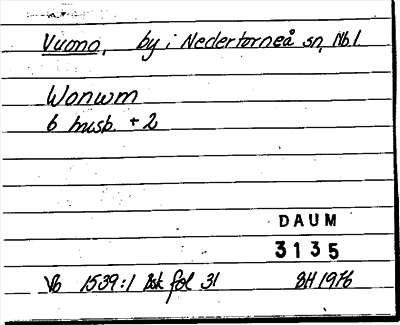 Vuono, by i Nedertorneå sn, Nb.l.
Wonwm
6 husb. + 2
DAUM
3135
Vb 1539:1 Bsk fol 31 BH 1976